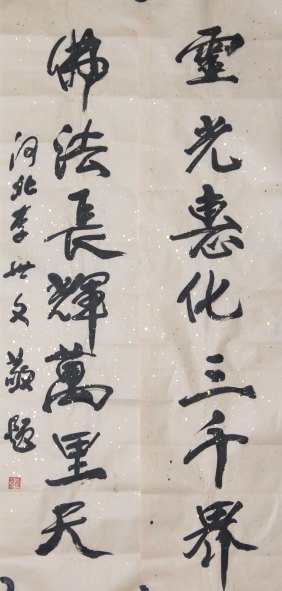 靈光惠化三千界
佛法長輝萬里天
河北李世文敬題